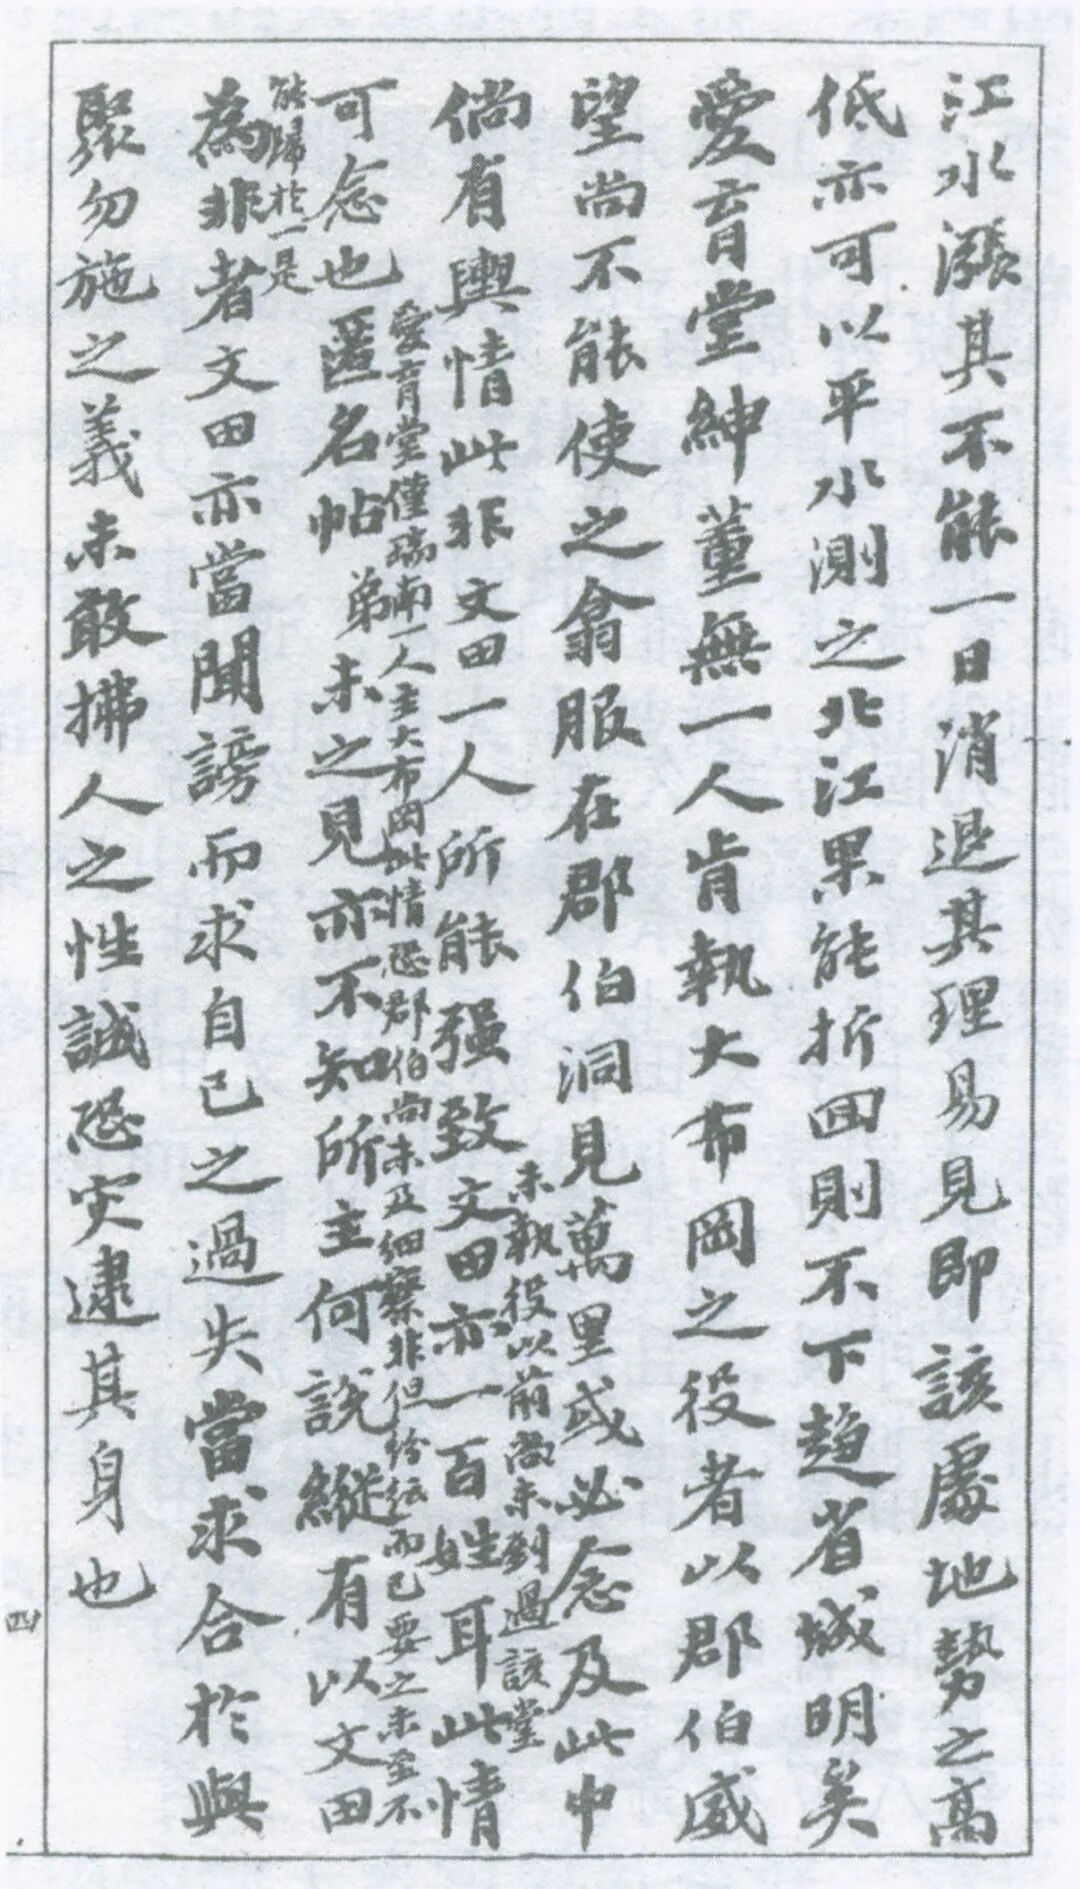 江水漲其不能一日消退其理易見即該處地勢之高
低亦可以平水測之北江果能折回則不下趨省城明矣
愛育堂紳董無一人肯執大布岡之役者以郡伯威
望尚不能使之翕服在郡伯洞見萬里或必念及此中
未執役以前尚未到過該堂
倘有輿情此非文田一人所能强致文田亦一百姓耳此情
愛育堂僅瑞南一人主大布岡此情恐郡伯尚未及細察非但紛紜而已要之未至不
可念也匿名帖弟未之見亦不知所主何說縱有以文田
能歸於一是
為非者文田亦當聞謗而求自己之過失當求合於與
聚勿施之義未敢拂人之性誠恐灾逮其身也
四